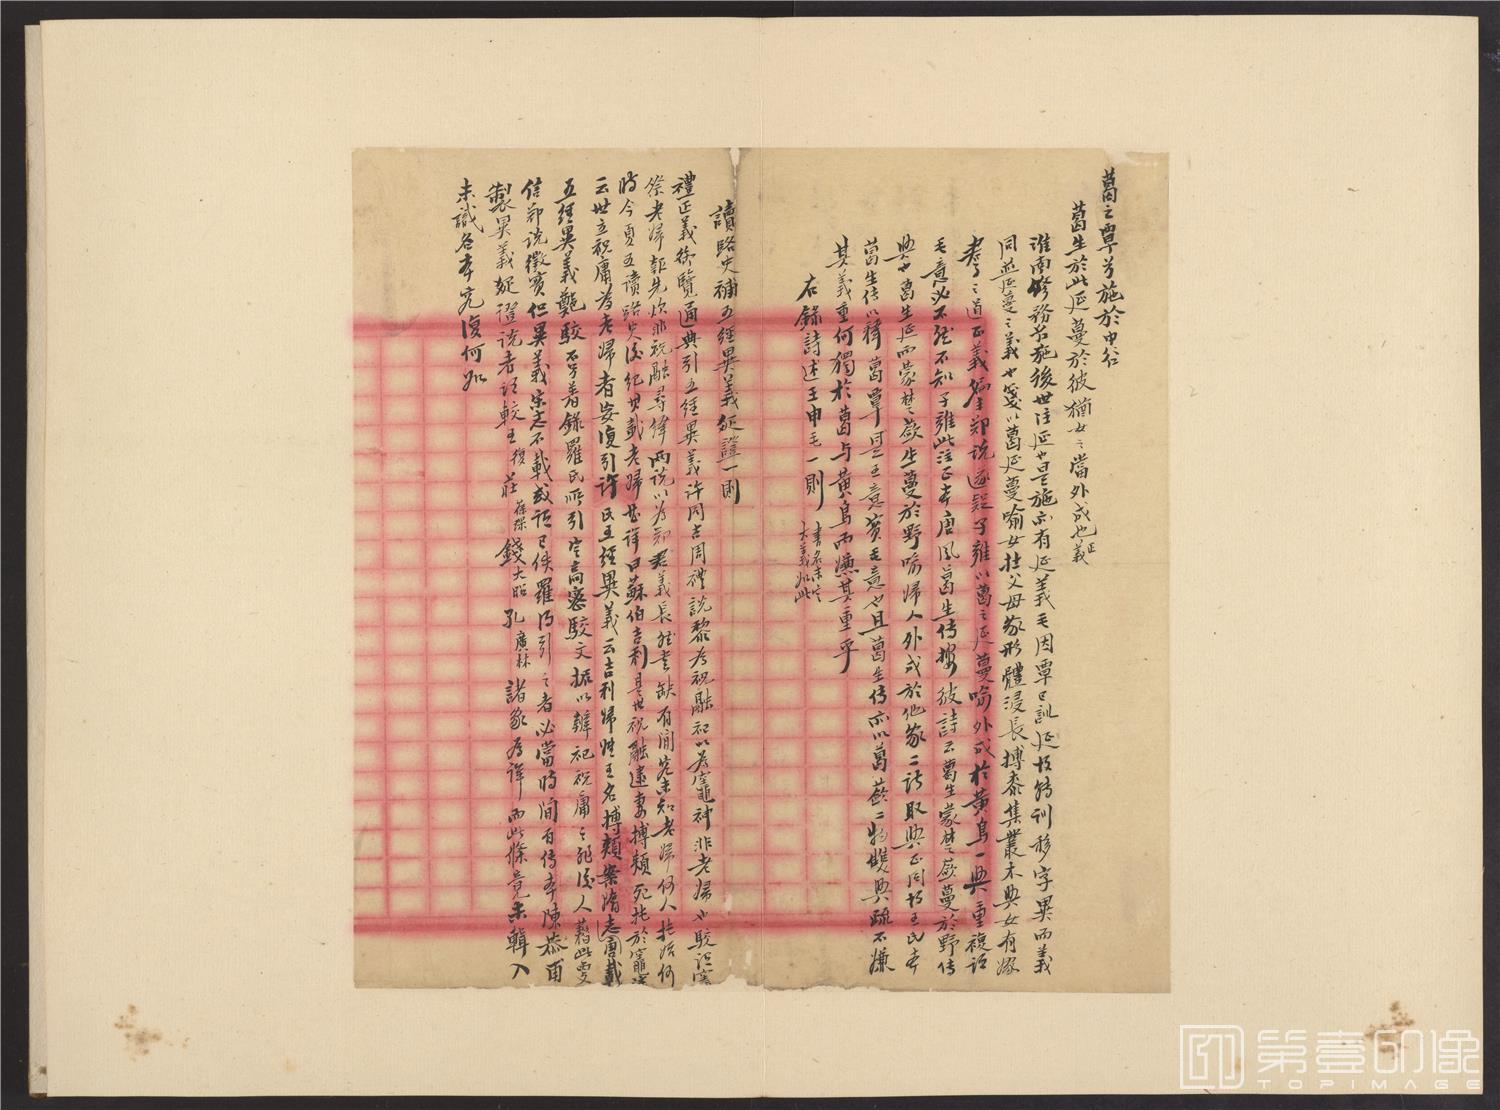 葛之覃兮施於中谷
葛生於此延蔓於彼猶女之當外成也正義
淮南脩務若施後世注延也是施亦有延義毛因覃已訓延故轉訓移字異而義
同並延蔓之義也箋以葛延蔓喻女在父母家形體浸長摶黍集叢木興女有嫁
之道正義舉鄭說遂疑子雍以葛之延蔓喻外成於黃鳥一興重複謂
毛意必不然不知子雍此注正本唐風葛生傳按彼詩云葛生蒙楚蘞蔓於野傳
興也葛生延而蒙楚蘞生蔓於野喻婦人外成於他家二詩取興正同故王氏本
葛生傳以釋葛覃是王意實毛意也且葛生傳亦以葛蘞二物雙興疏不嫌
其義重何獨於葛與黃鳥而嫌其重乎
右錄詩述王申毛一則 書名未定大義如此
讀路史補五經異義疑證一則
禮正義後覽通典引五經異義許同古周禮說黎為祝融祀以為竈神非老婦也駁謂竈
祭老婦報先炊非祝融尋繹兩說以為鄭君義長然書缺有間究未知老婦何人托始何
時今夏五讀路史後紀其載老婦甚詳曰蘇伯吉利是世祝融逮妻摶頰死托於竈
云世立祝庸為老婦者妄復引許氏五經異義云吉利婦姓王名摶頰案隋志唐載
五經異義鄭駁不另著錄羅氏所引定高密駁文振以辯祀祝庸之非後人
信鄭說徵實但異義宋志不載或謂已佚羅得引之者必當時間有傳本陳恭甫
製異義疑證說者謂較王復莊葆琛錢大昭孔廣林諸家為詳而此條竟未輯入
未識名本究復何如
第壹印像
TOPIMAGE